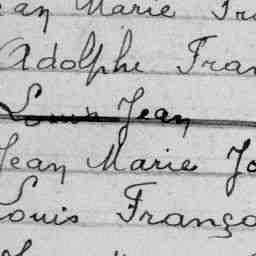 ean Marie Fra
Adolphe Fran
Louis Jean
Jean Marie Jo
Louis Franço